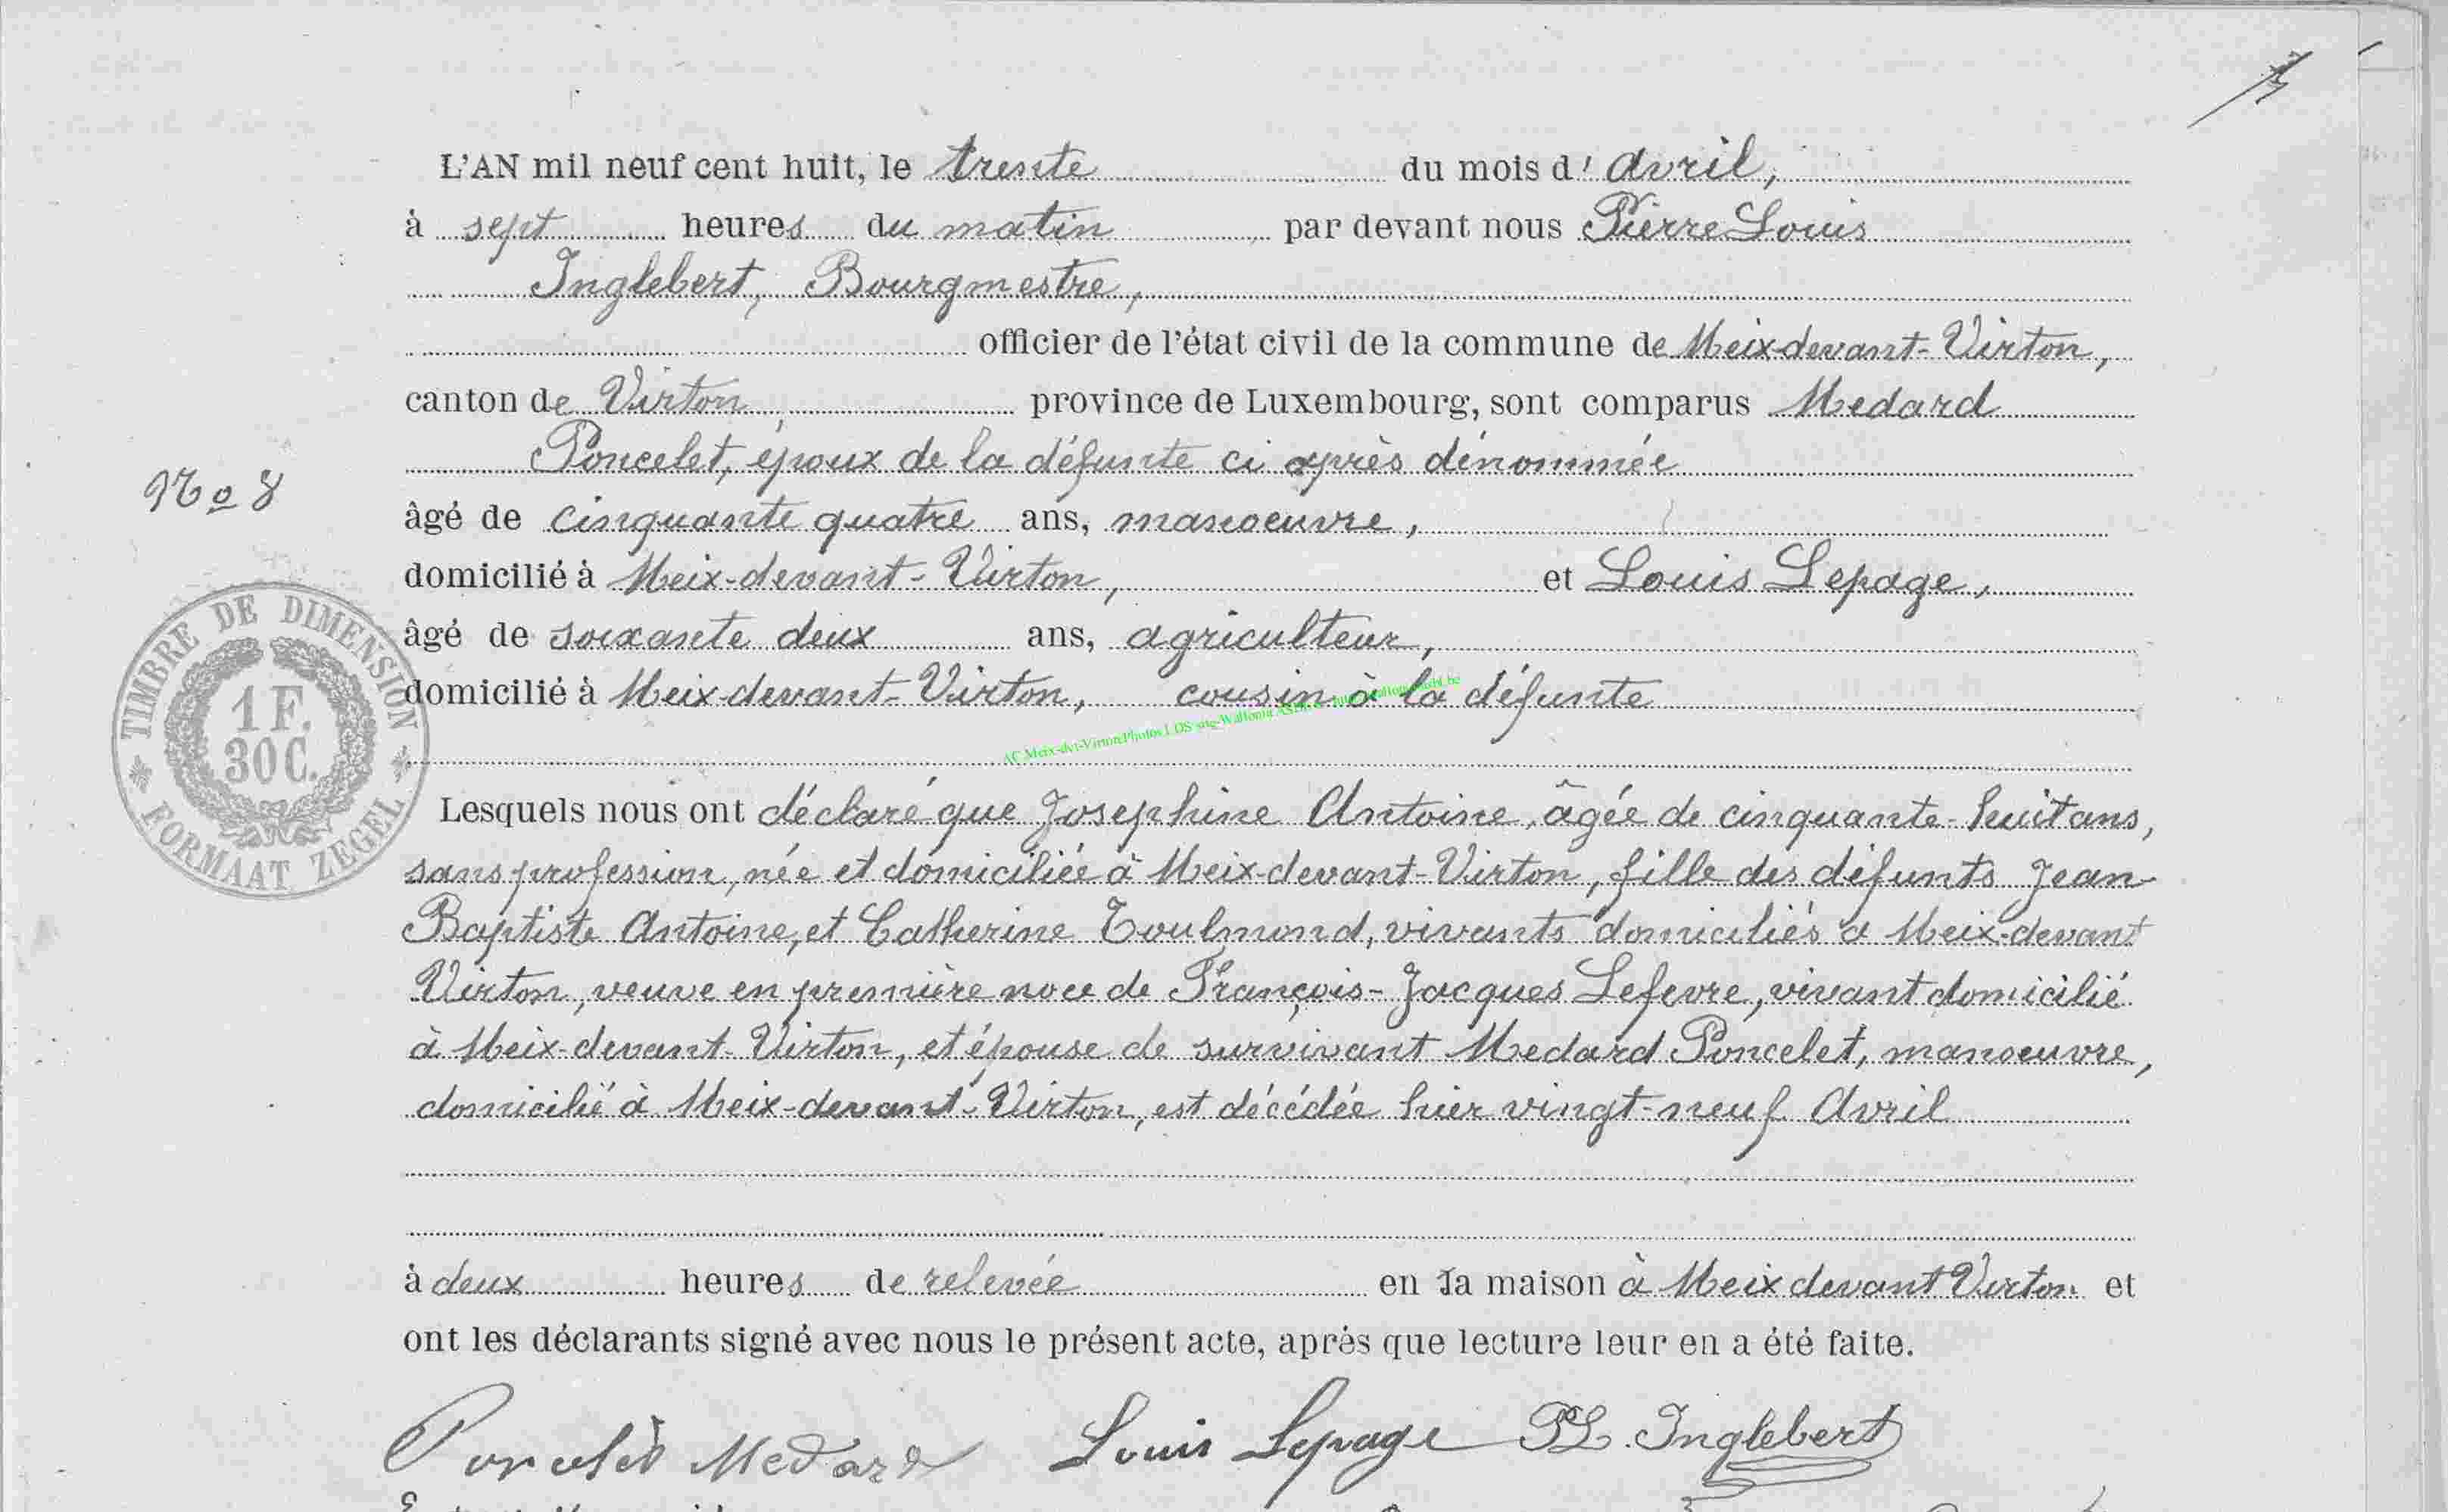 L'AN mil neuf cent huit, le trente du mois d' Avril,
à sept heures du matin par devant nous Pierre Louis
Inglebert, Bourgmestre,
officier de l'état civil de la commune de Meix-devant-Virton,
canton de Virton, province de Luxembourg, sont comparus Medard
Poncelet, époux de la défunte ci après dénommée
No 8
âgé de cinquante quatre ans, manoeuvre,
domicilié à Meix-devant-Virton, et Louis Lepage,
âgé de soixante deux ans, agriculteur,
domicilié à Meix-devant-Virton, cousin à la défunte
TIMBRE DE DIMENSION
1 F.
30 C.
FORMAAT ZEGEL
Lesquels nous ont déclaré que Josephine Antoine, âgée de cinquante-huit ans,
sans profession, née et domiciliée à Meix-devant-Virton, fille des défunts Jean
Baptiste Antoine, et Catherine Toulmond, vivants domiciliés à Meix-devant
Virton, veuve en première noce de François-Jacques Lefevre, vivant domicilié
à Meix-devant-Virton, et épouse de survivant Medard Poncelet, manoeuvre,
domicilié à Meix-devant-Virton, est décédée hier vingt-neuf Avril
à deux heures de relevée en la maison à Meix devant Virton et
ont les déclarants signé avec nous le présent acte, après que lecture leur en a été faite.
Poncelet Medard Louis Lepage PL. Inglebert